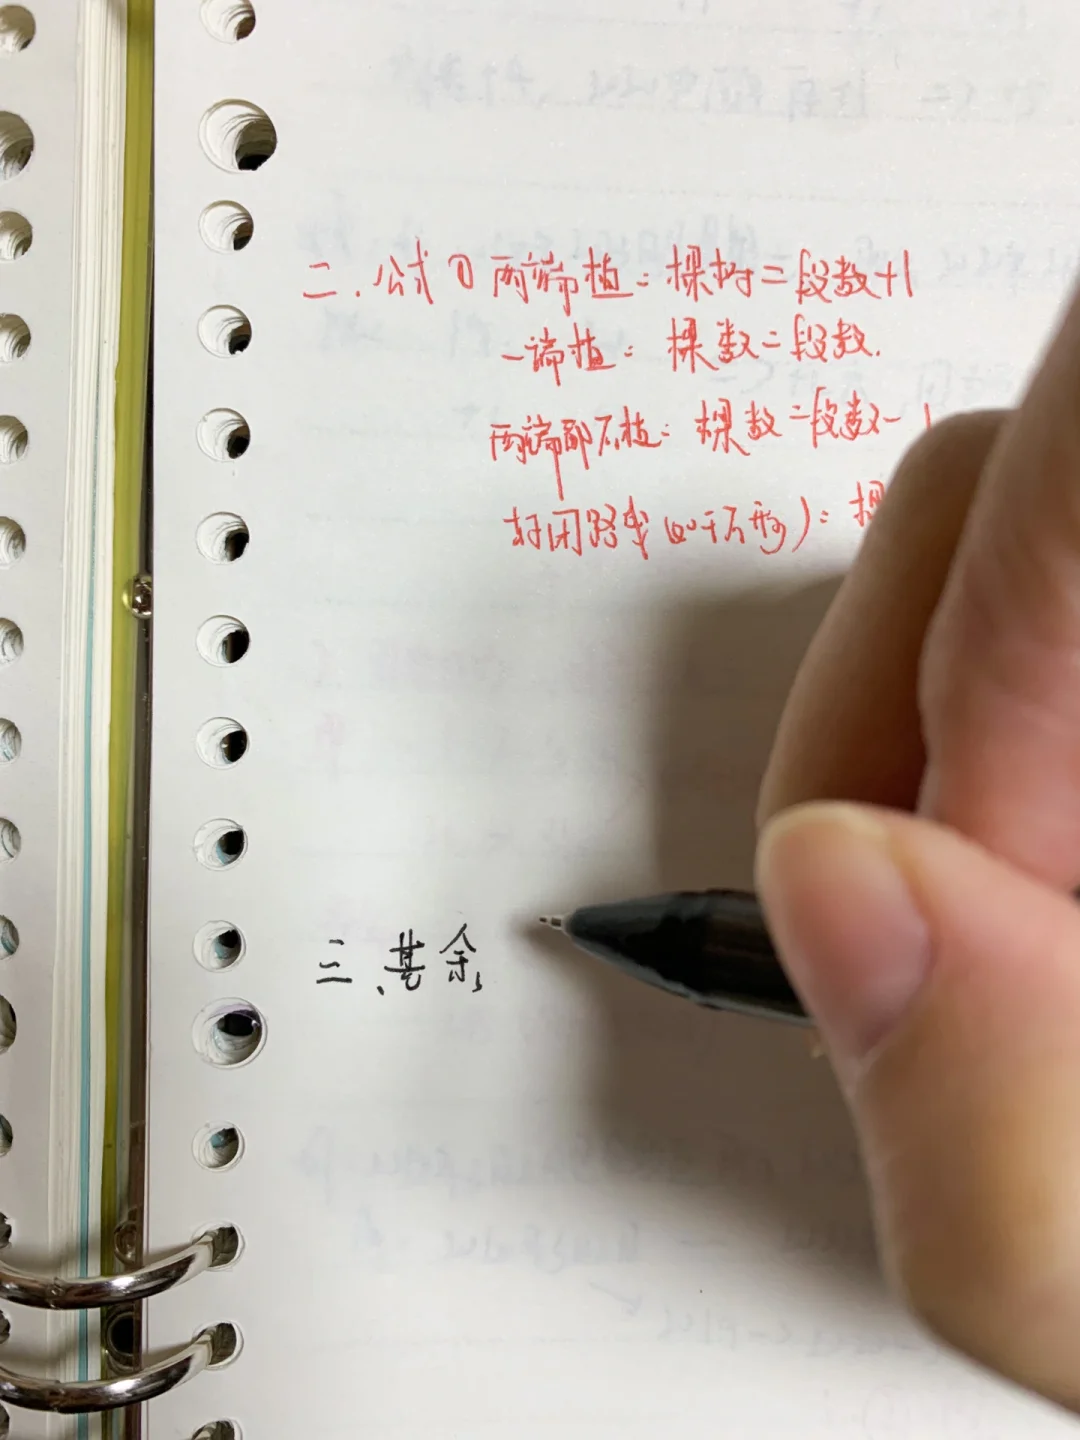 二.公式①两端植:棵树=段数+1
一端植:棵数=段数.
两端都不植:棵数=段数-1
封闭路线(如环形):棵
三、其余